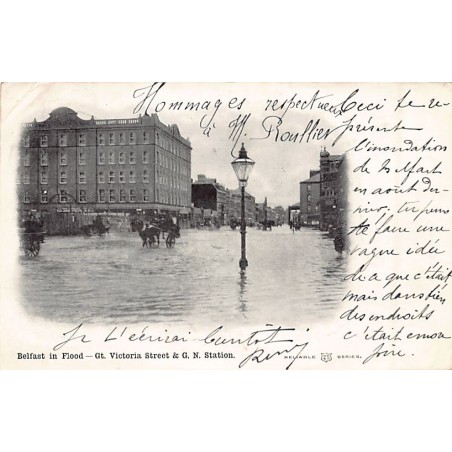 Hommages respectueux
à M. Roullier
Ceci te re-
présente
l'inondation
de Belfast
en août der-
nier, tu peux
te faire une
vague idée
de ce que c'était
mais dans bien
des endroits
c'était encore
pire.
Je t'écrirai bientôt
Belfast in Flood — Gt. Victoria Street & G. N. Station.
RELIABLE SERIES.